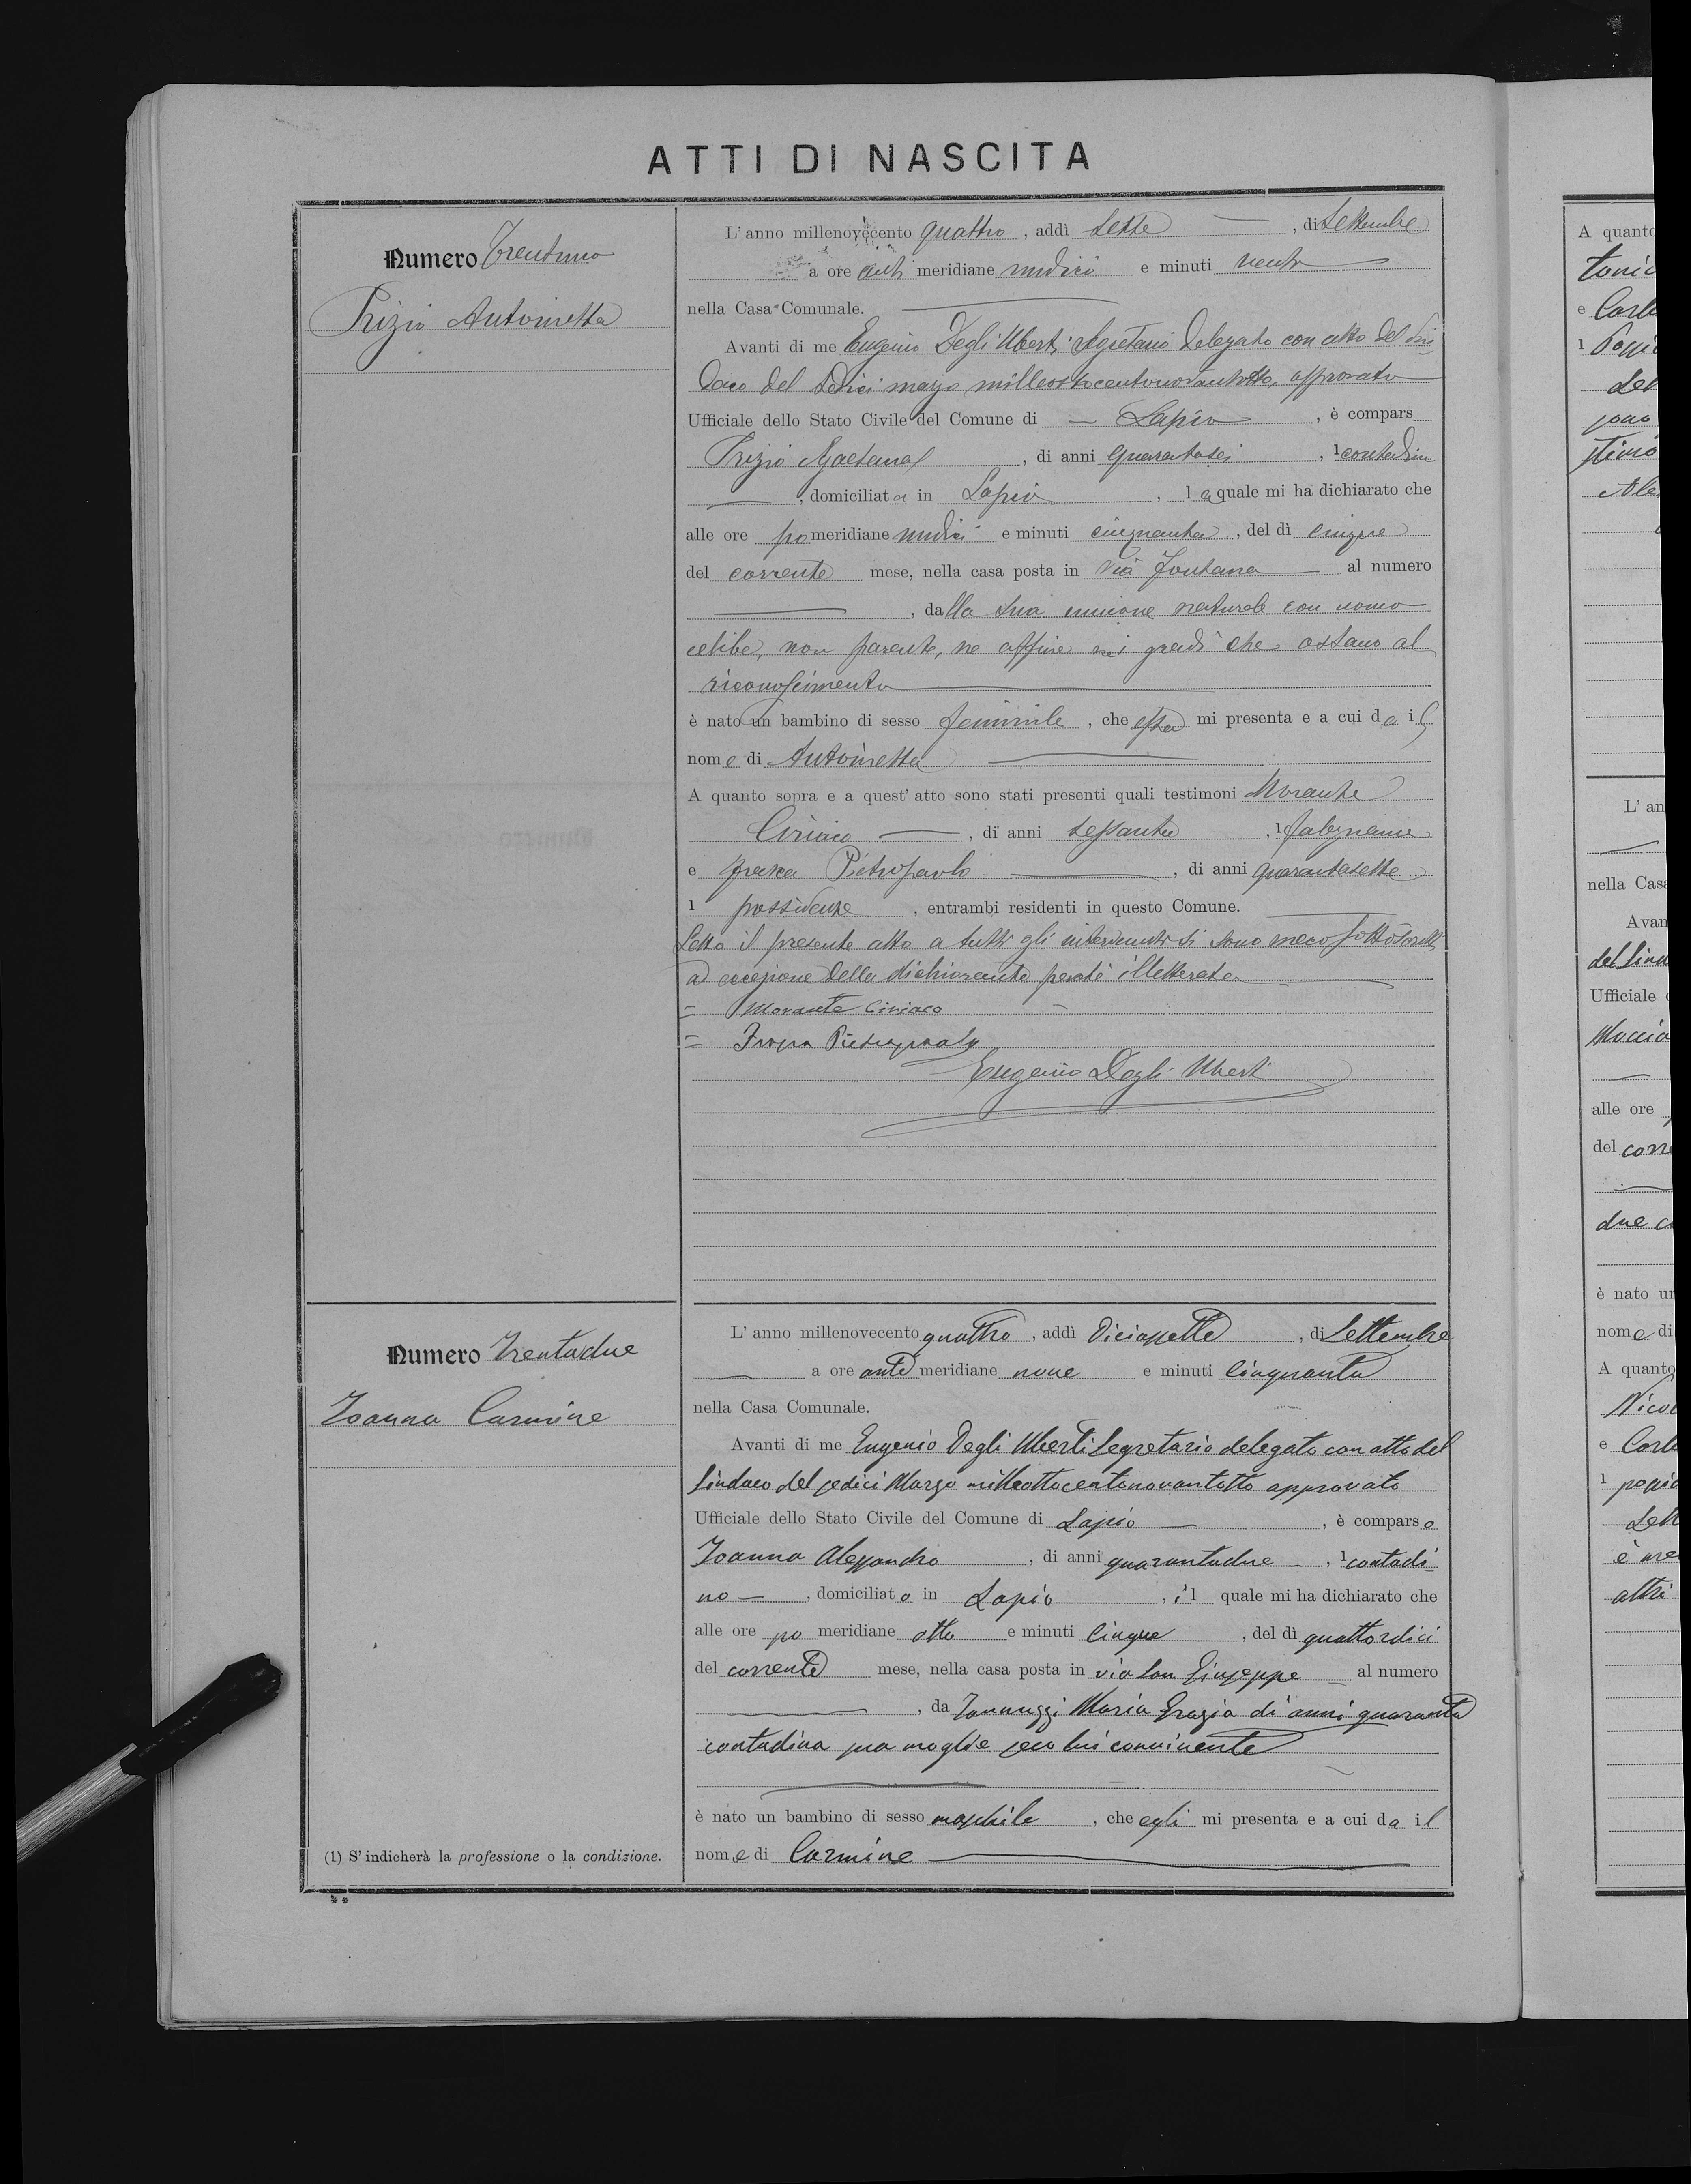 ATTI DI NASCITA
Numero Trentuno
Prizio Antonietta
L'anno millenovecento quattro, addì Sette, di Settembre
a ore anti meridiane undici e minuti venti
nella Casa Comunale.
Avanti di me Eugenio Degli Uberti, Segretario delegato con atto del Sin
daco del Sedici marzo milleottocentonovantotto, approvato
Ufficiale dello Stato Civile del Comune di Lapio, è compars
Prizio Gaetana, di anni quarantasei, 1 contadina
, domiciliata in Lapio, la quale mi ha dichiarato che
alle ore pomeridiane undici e minuti cinquanta, del dì cinque
del corrente mese, nella casa posta in via Fontana al numero
, dalla sua unione naturale con uomo
celibe, non parente, ne affine nei gradi che ostano al
riconoscimento
è nato un bambino di sesso feminile, che essa mi presenta e a cui da il
nome di Antonietta
A quanto sopra e a quest'atto sono stati presenti quali testimoni Morante
Ciriaco, di anni sessanta, 1 falegname
e Pietropaolo, di anni quarantasette
1 possidente, entrambi residenti in questo Comune.
Letto il presente atto a tutti gli intervenuti si sono meco sottoscritti
ad eccezione della dichiarante perchè illetterata
= Morante Ciriaco
= Pietropaolo
Eugenio Degli Uberti
Numero Trentadue
Ioanna Carmine
L'anno millenovecento quattro, addì Diciassette, di Settembre
a ore ante meridiane nove e minuti Cinquanta
nella Casa Comunale.
Avanti di me Eugenio Degli Uberti Segretario delegato con atto del
Sindaco del sedici Marzo milleottocentonovantotto approvato
Ufficiale dello Stato Civile del Comune di Lapio, è comparso
Ioanna Alessandro, di anni quarantadue, 1 contadi
no, domiciliato in Lapio, il quale mi ha dichiarato che
alle ore po meridiane otto e minuti Cinque, del dì quattordici
del corrente mese, nella casa posta in via San Giuseppe al numero
, da Iannuzzi Maria Grazia di anni quaranta
contadina sua moglie seco lui convivente
è nato un bambino di sesso maschile, che egli mi presenta e a cui da il
nome di Carmine
(1) S'indicherà la professione o la condizione.
**
A quanto
e Carb
1
L' an
nella Casa
Avan
del Sind
Ufficiale
alle ore
del corre
due
è nato un
nome di
A quanto
e Carb
1
altri